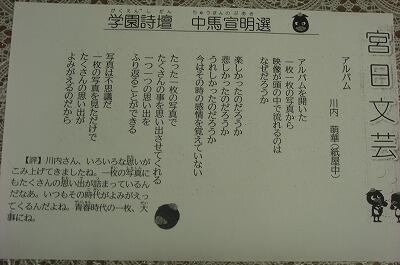 学園詩壇 中馬宣明選
がくえんしだん ちゅうまんのぶあき
宮日文芸
アルバム
川内 萌華(紙屋中)
アルバムを開いた
一枚一枚の写真から
映像が頭の中で流れるのは
なぜだろうか
楽しかったのだろうか
悲しかったのだろうか
うれしかったのだろうか
今はその時の感情を覚えていない
たった一枚の写真で
たくさんの事を思い出させてくれる
一つ一つの思い出を
ふり返ることができる
写真は不思議だ
一枚の写真を見ただけで
たくさんの思い出が
よみがえるのだから
【評】川内さん、いろいろな思いが
こみ上げてきましたね。一枚の写真に
もたくさんの思い出が詰まっているん
だなあ。いつもその時代がよみがえっ
てくるんだよね。青春時代の一枚、大
事にね。